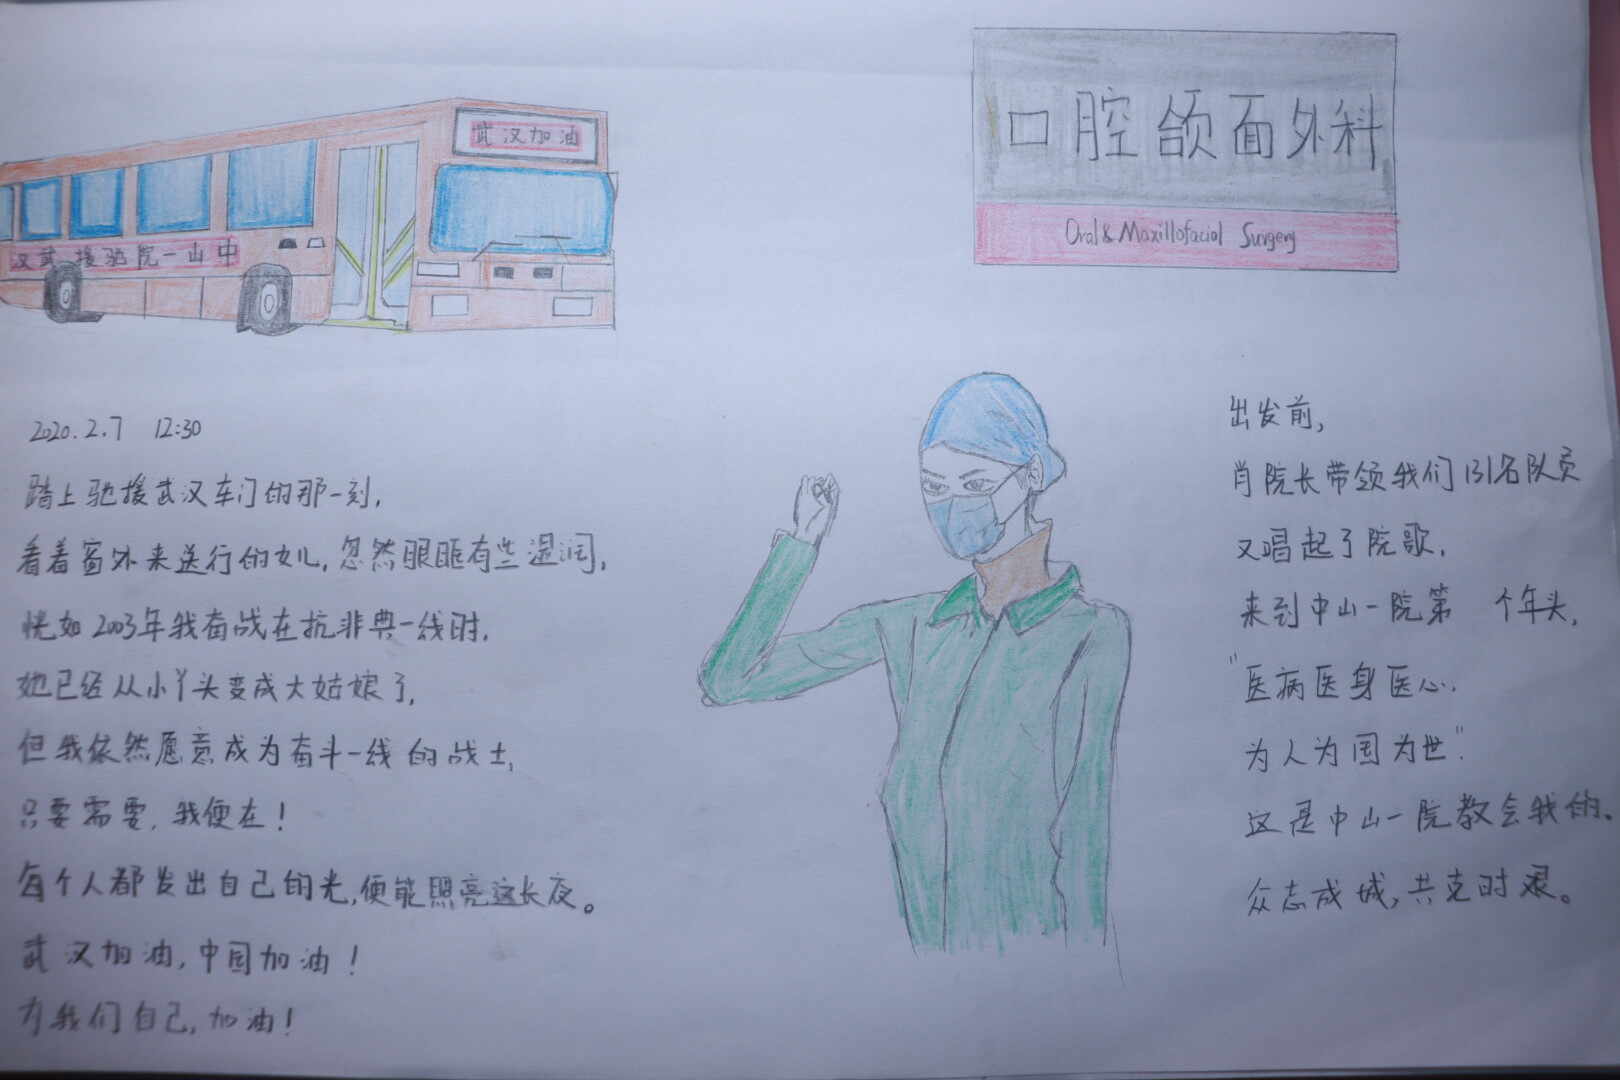 武汉加油
汉武援驰院一山中
口腔颌面外科
Oral & Maxillofacial Surgery
2020.2.7 12:30
踏上驰援武汉车门的那一刻,
看着窗外来送行的女儿,忽然眼眶有些湿润,
恍如2003年我奋战在抗非典一线时,
她已经从小丫头变成大姑娘了,
但我依然愿意成为奋斗一线的战士,
只要需要,我便在!
每个人都发出自己的光,便能照亮这长夜。
武汉加油,中国加油!
为我们自己,加油!
出发前,
肖院长带领我们131名队员
又唱起了院歌,
来到中山一院第 个年头,
"医病医身医心,
为人为国为世".
这是中山一院教会我的。
众志成城,共克时艰。